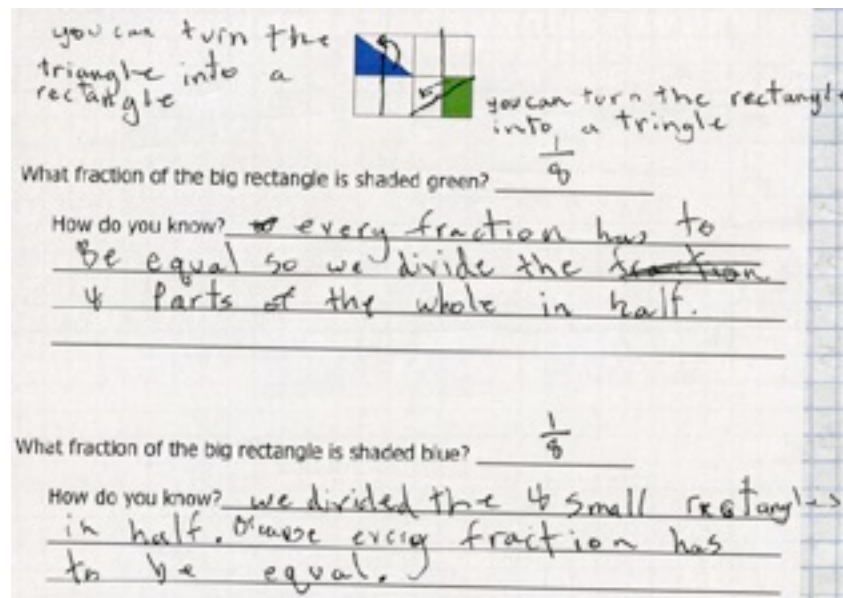 you can turn the
triangle into a
rectangle
you can turn the rectangle
into a tringle
What fraction of the big rectangle is shaded green? 1/8
How do you know? every fraction has to
Be equal so we divide the fraction
4 Parts of the whole in half.
What fraction of the big rectangle is shaded blue? 1/8
How do you know? we divided the 4 small rectangles
in half. Because every fraction has
to be equal.